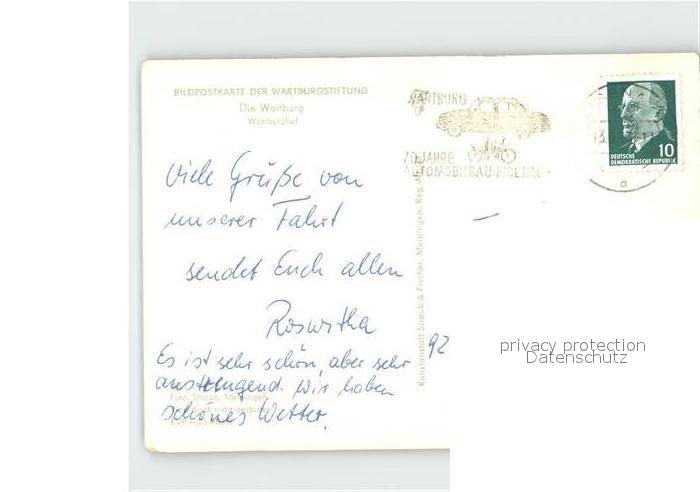 BILDPOSTKARTE DER WARTBURGSTIFTUNG
Die Wartburg
Wartburghof
WARTBURG
70 JAHRE
AUTOMOBILBAU EISENACH
DEUTSCHE
DEMOKRATISCHE REPUBLIK 10
a
Viele Grüße von
unserer Fahrt
sendet Euch allen
Roswitha
Es ist sehr schön, aber sehr
anstrengend. Wir haben
schönes Wetter.
Foto: Straub, Meiningen
Kunstanstalt Straub & Fischer, Meiningen, Reg.
92
privacy protection
Datenschutz